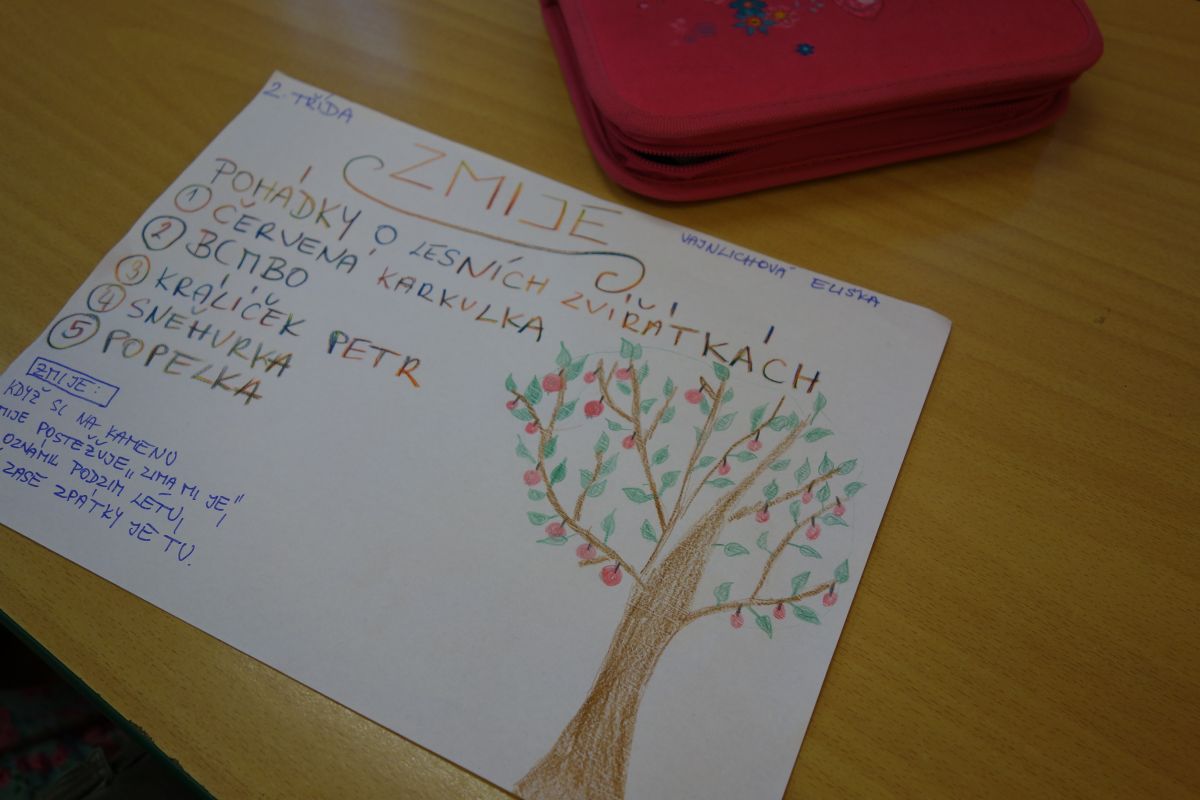 2. TŘÍDA
ZMIJE
VAJNLICHOVÁ ELIŠKA
POHÁDKY O LESNÍCH ZVÍŘÁTKÁCH
1 ČERVENÁ KARKULKA
2 BCMBO
3 KRÁLÍČEK PETR
4 SNEHURKA
5 POPELKA
ZMIJE:
KDYŽ SI NA KAMENU
MIJE POSTEŽUJE „ZIMA MI JE",
OZNÁMIL PODZIM LÉTU,
ZASE ZPÁTKY JE TU.